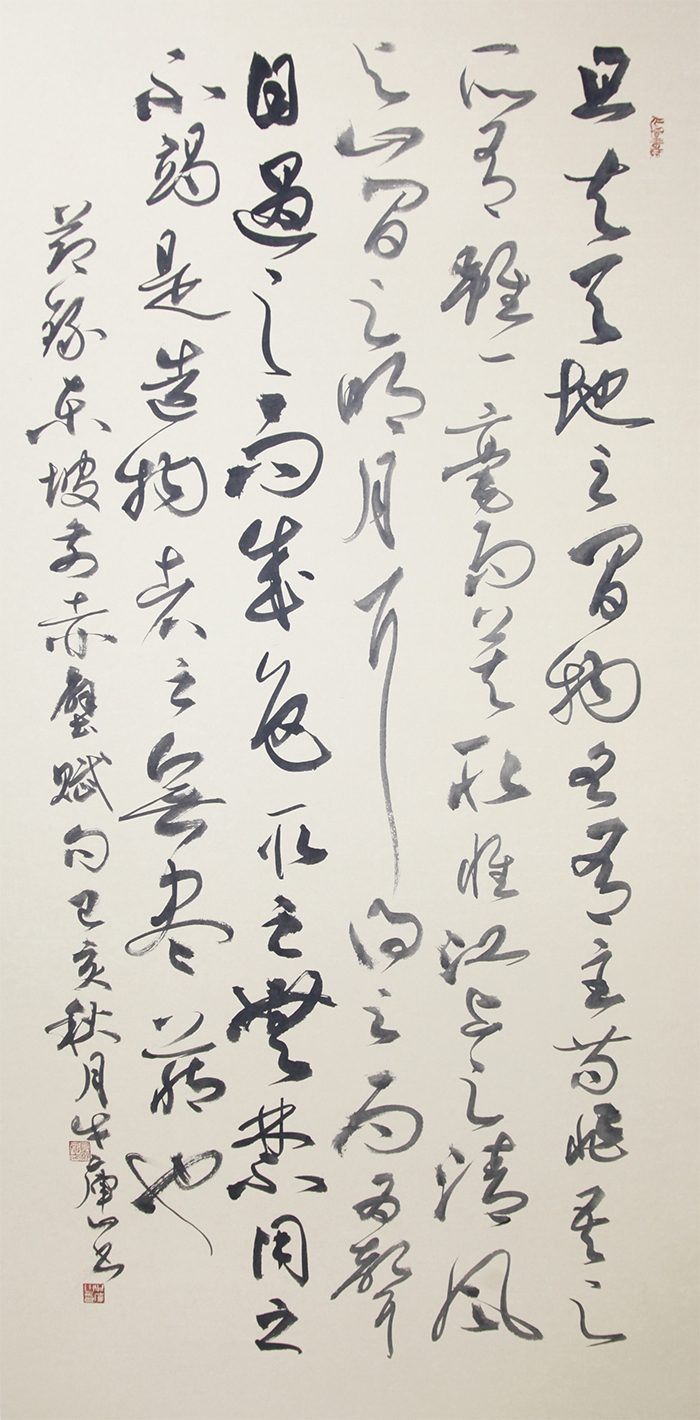 且夫天地之間物各有主苟非吾之
所有雖一毫而莫取惟江上之清風
与山間之明月耳得之而為聲
目遇之而成色取之無禁用之
不竭是造物者之無尽藏也
節錄東坡前赤壁賦句己亥秋月